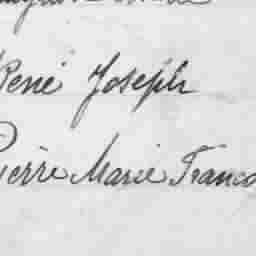 René Joseph
Pierre Marie Franco